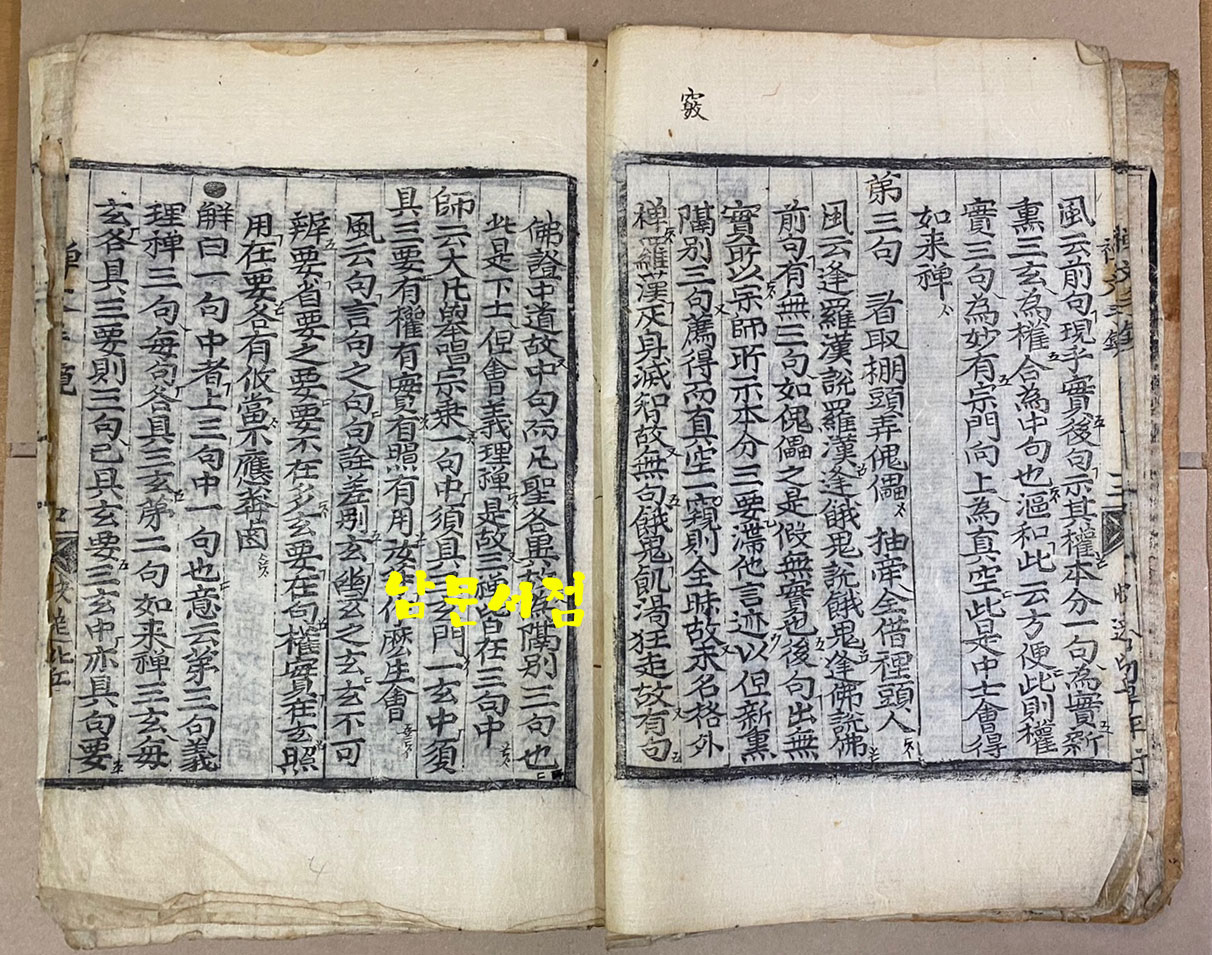 竅
風云前句現乎實後句示其權本分一句為實新
熏三玄為權合為中句也漚和此云方便此則權
實三句為妙有宗門向上為真空此是中士會得
如来禅
第三句 看取棚頭弄傀儡 抽牽全借裡頭人
風云逢羅漢說羅漢逢餓鬼說餓鬼逢佛說佛
前句有無三句如傀儡之是假無實也後句出無
實所以宗師所示本分三要滞他言迹以但新熏
隔別三句薦得而真空一竅則全昧故未名格外
禅羅漢灰身滅智故無句餓鬼飢渴狂走故有句
佛證中道故中句而凡聖各異故為隔別三句也
此是下士但會義理禅是故三禅皆在三句中
師云大凡舉唱宗乗一句中須具三玄門一玄中須
具三要有權有實有照有用汝䒭作麽生會
風云句言句之句句詮差別玄幽玄之玄玄不可
辨要省要之要要不在多玄要在句權實在玄照
用在要各有攸當不應莽鹵
●解曰一句中者上三句中一句也意云第三句義
理禅三句每句各具三玄第二句如来禅三玄每
玄各具三要則三句已具玄要三玄中亦具句要
남문서점
4